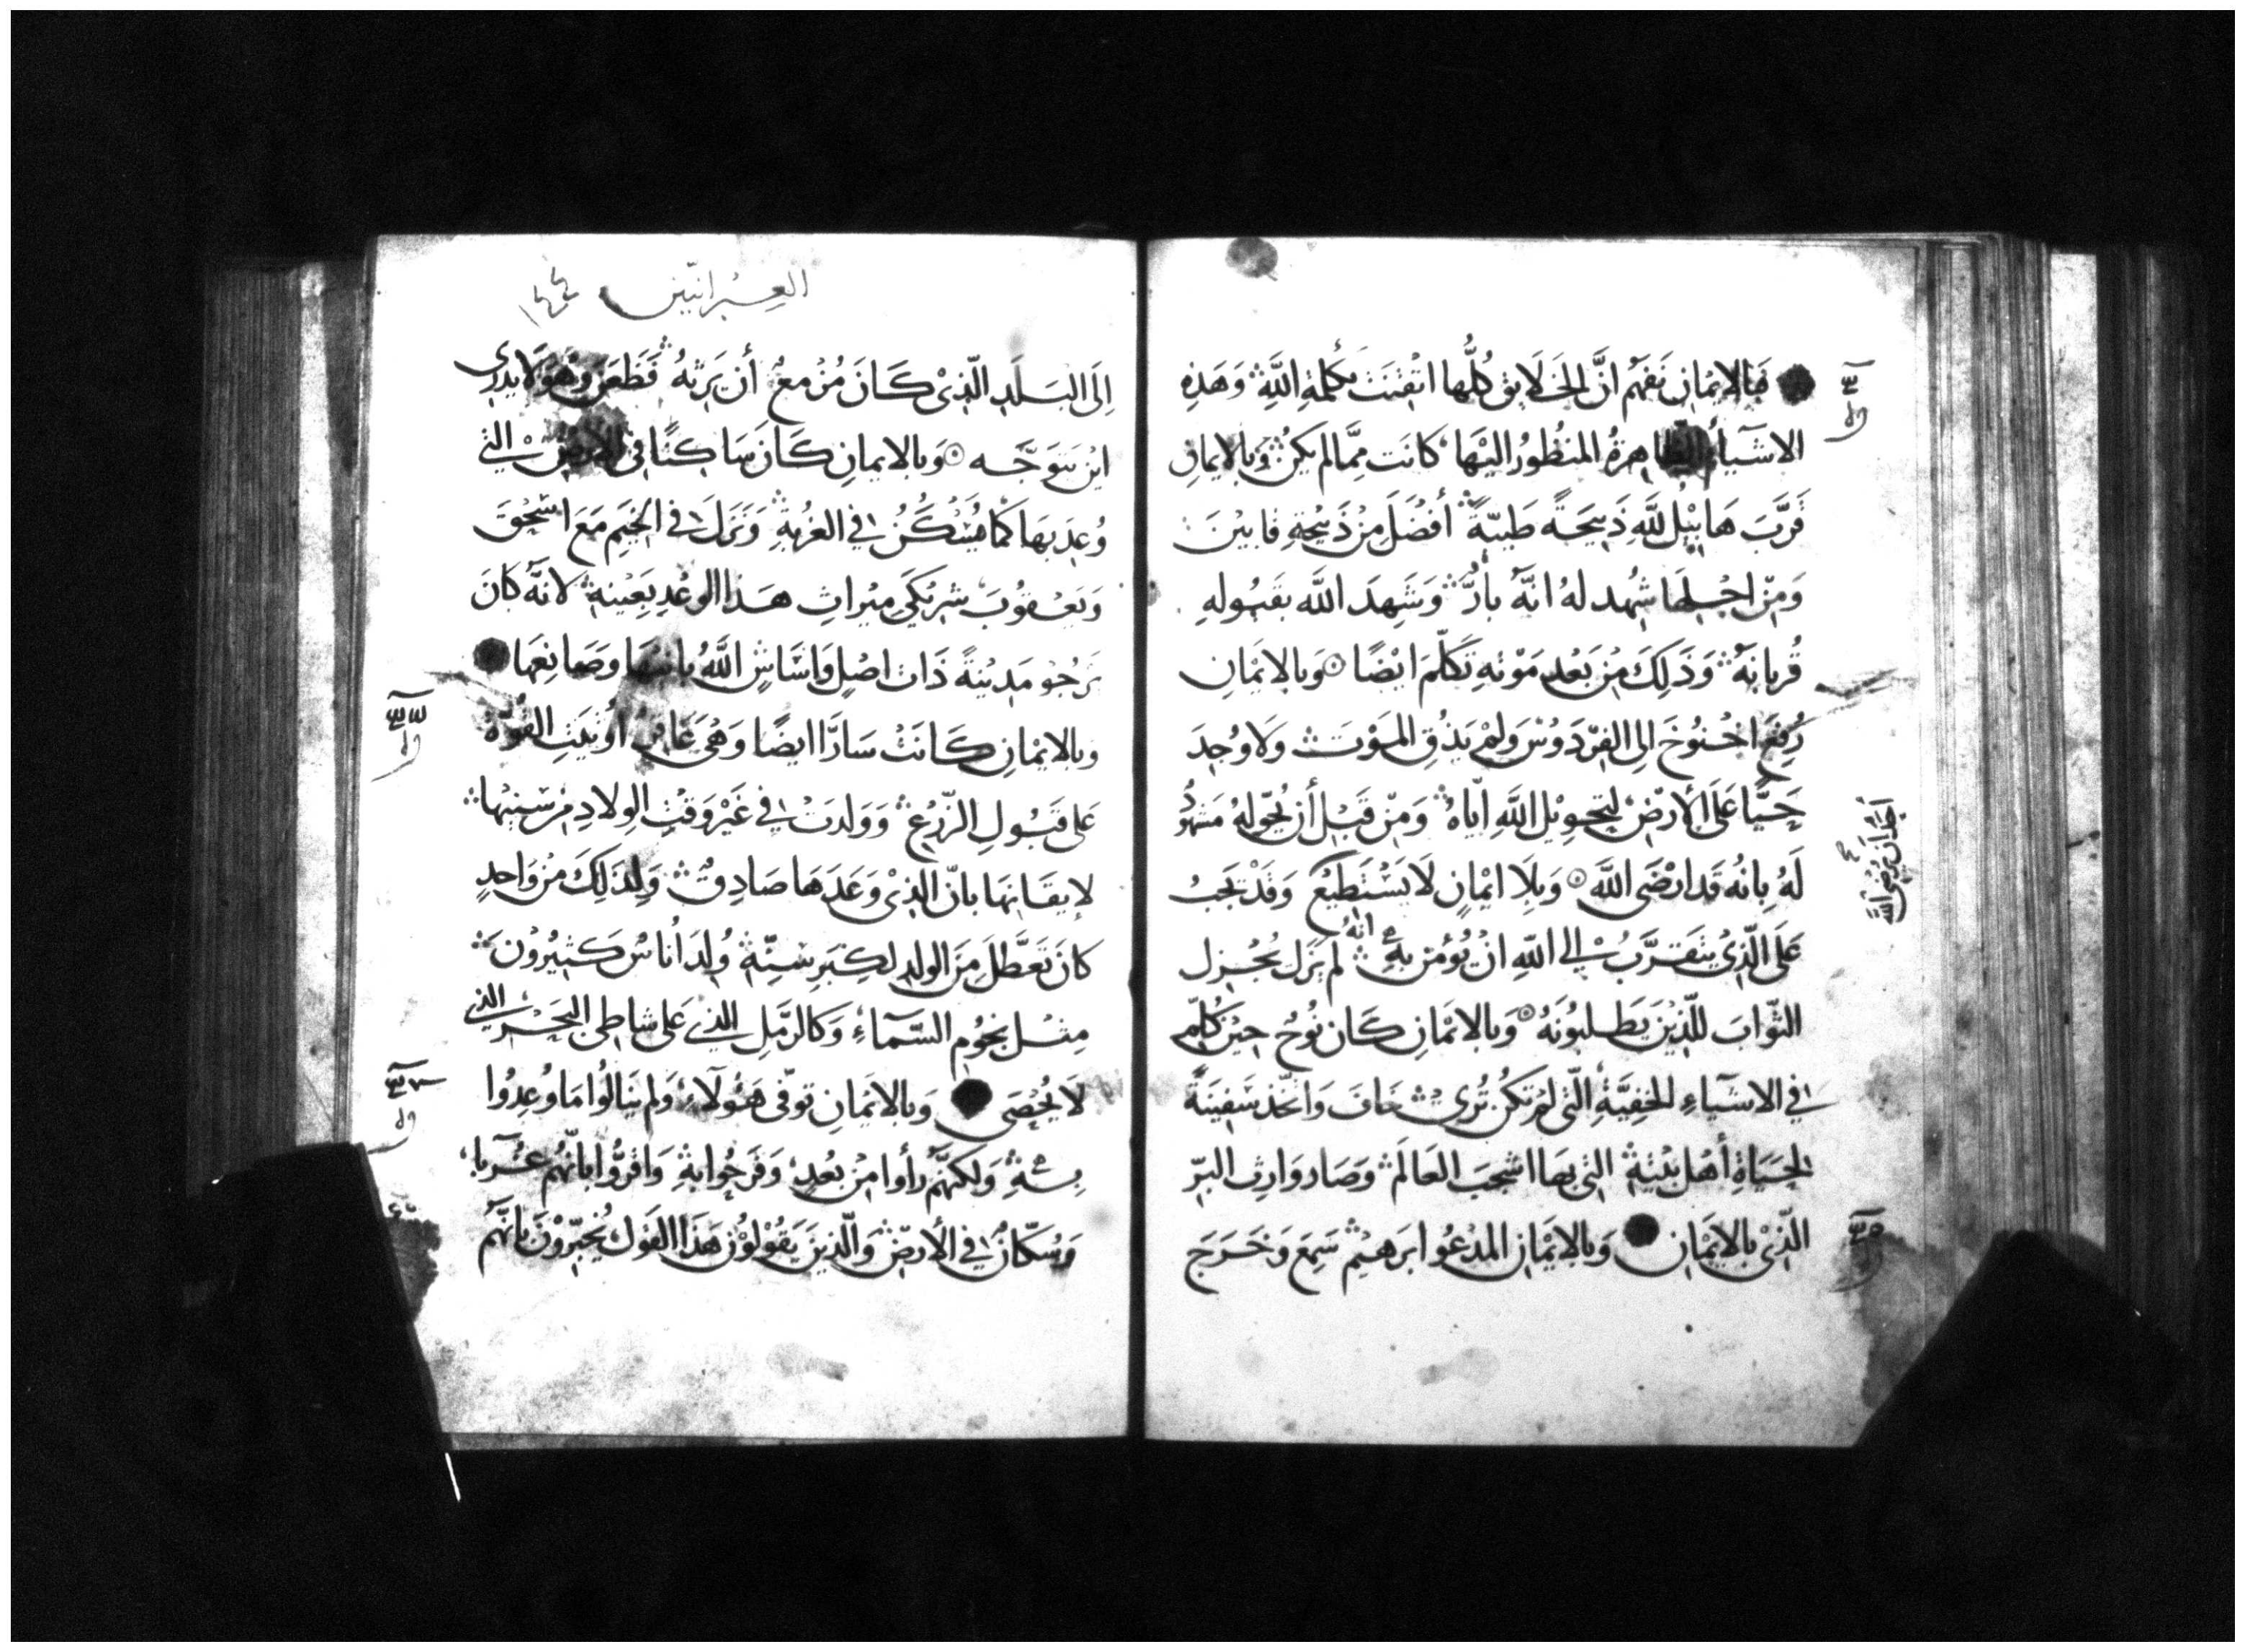 فبالايمان نفهم انَّ الخلايق كُلُّها اتقنت بكلمةِ اللَّهِ وَهَذِهِ
الاشيآءُ الظاهرةُ المنظُورُ اليْها كانَت ممَّا لم يَكُن وَبالايمانِ
قَرَّبَ هَابِيْل للَّهِ ذَبِيحَةً طَيبَّةً أفضَلَ مِنْ ذَبِيْحَةِ قايْنَ
وَمِنْ اجْلِهَا شُهد لهُ انَّهُ بارٌّ وَشَهِدَ اللَّه بقبُولهِ
قُربانَهُ وَذَلِكَ مِنْ بَعْد مَوْتهِ تَكلَّمَ ايْضًا وَبالايْمَانِ
رُفِعَ اخْنُوخَ الى الفِرْدَوْسْ وَلَمْ يَذُقِ المَوْت وَلا وُجِدَ
حَيًّا عَلَى الأرْضِ لِتَحوِيْل اللَّهِ اِيَّاهُ وَمِنْ قَبْل أن يُحَوّلهُ مَشهُودٌ
لَهُ بِانهُ قد ارْضَى اللَّه وَبِلَا ايْمَانٍ لَا يَسْتَطيْعُ وَقَدْ يَجبُ
أَحَدٌ أن يُرْضِىَ اللَّه
عَلَى الَّذِىْ يتقرَّبُ الى اللَّهِ انْ يُؤمن بهِ انهُ لم يَزَل يُجْزِل
الثَّوابَ للَّذِيْنَ يَطلبُونَهُ وَبالايْمَانِ كَان نُوْحُ حِيْن كُلِّم
فى الاشيآءِ الخفِيَّةِ الَّتى لَمْ تكُن تُرى خَافَ وَاتَّخذ سَفِينَةً
لحَيَاةِ أهْل بَيْتهِ التى بهَا اشجَبَ العَالَم وَصَار وَارِثَ البرّ
الَّذِىْ بالايْمَانِ وَبالايْمَانِ المدْعُو ابرَهيْم سَمِعَ وَخَرَجَ
العِبْرانيّين ١٤٤
اِلَى البَلَدِ الَّذِىْ كَانَ مُزْمعٌ أن يَرَثهُ فَظَعَنَ وَهُوَ لا يَدْرى
ايْن يَتوَجَّه وَبالايمانِ كَانَ سَاكنًا فى الأرْضِ التى
وُعِدَ بهَا كَمَا يُسْكَنُ فى الغُرْبةِ وَنَزَلَ فى الخيَم مَعَ اسْحٰقَ
وَيَعْقُوبَ شرِيْكَى ميْراثِ هَذا الوعْدِ بعِيْنهِ لانَّهُ كَانَ
يَرجُوْ مَدِيْنةً ذَات اصْلٍ وَاسَاسٍ اللَّهُ بانيهَا وصَانِعهَا
وبالايْمَانِ كَانَتْ سَارَّا ايضًا وَهْىَ عَاقِرٌ اُوْتيَتِ القُوَّة
عَلى قبُولِ الزَّرْعِ وَوَلدَتْ فى غَيْرِ وَقتِ الِولادِ مِنْ سنِيْهَا
لايقَانِهَا بانَّ الذِىْ وَعَدَهَا صَادِقٌ وَلِذَلِكَ مِنْ وَاحدٍ
كانَ تَعَطَّلَ مِنَ الولدِ لكِبَرِ سِنّهِ وُلِدَ اُنَاسٌ كَثِيْرُوْنَ
مِثْل نجُوْم السَّمآءِ وَكالرَّمْلِ الذِى عَلى شاطى البَحْرِ الذِى
لَا يُحْصَى وَبالايْمَانِ توفّى هَؤُلَآءِ وَلم يَنالُوا مَا وُعِدُوا
بهِ وَلكنَّهُم رأوا مِنْ بُعْدٍ وَفَرحُوا بهِ وَاقرُّوا بانَّهُم غُرَبآءُ
وَسُكّانٌ فى الأرْضِ وَالَّذِينَ يَقُوْلُوْنَ هَذَا القَوْل يُخبِرُوْنَ بانَّهُم